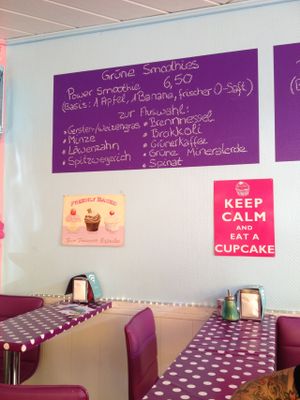 Grüne Smoothies
Power Smoothie 6,50
(Basis: 1 Apfel, 1 Banana, frischer O-Saft)
zur Auswahl:
• Gersten-/weizengras
• Minze
• Löwenzahn
• Spitzwegerich
• Brennnessel
• Brokkoli
• Grünerkaffee
• Grüne Mineralerde
• Spinat
FRESHLY BAKED
KEEP
CALM
AND
EAT A
CUPCAKE